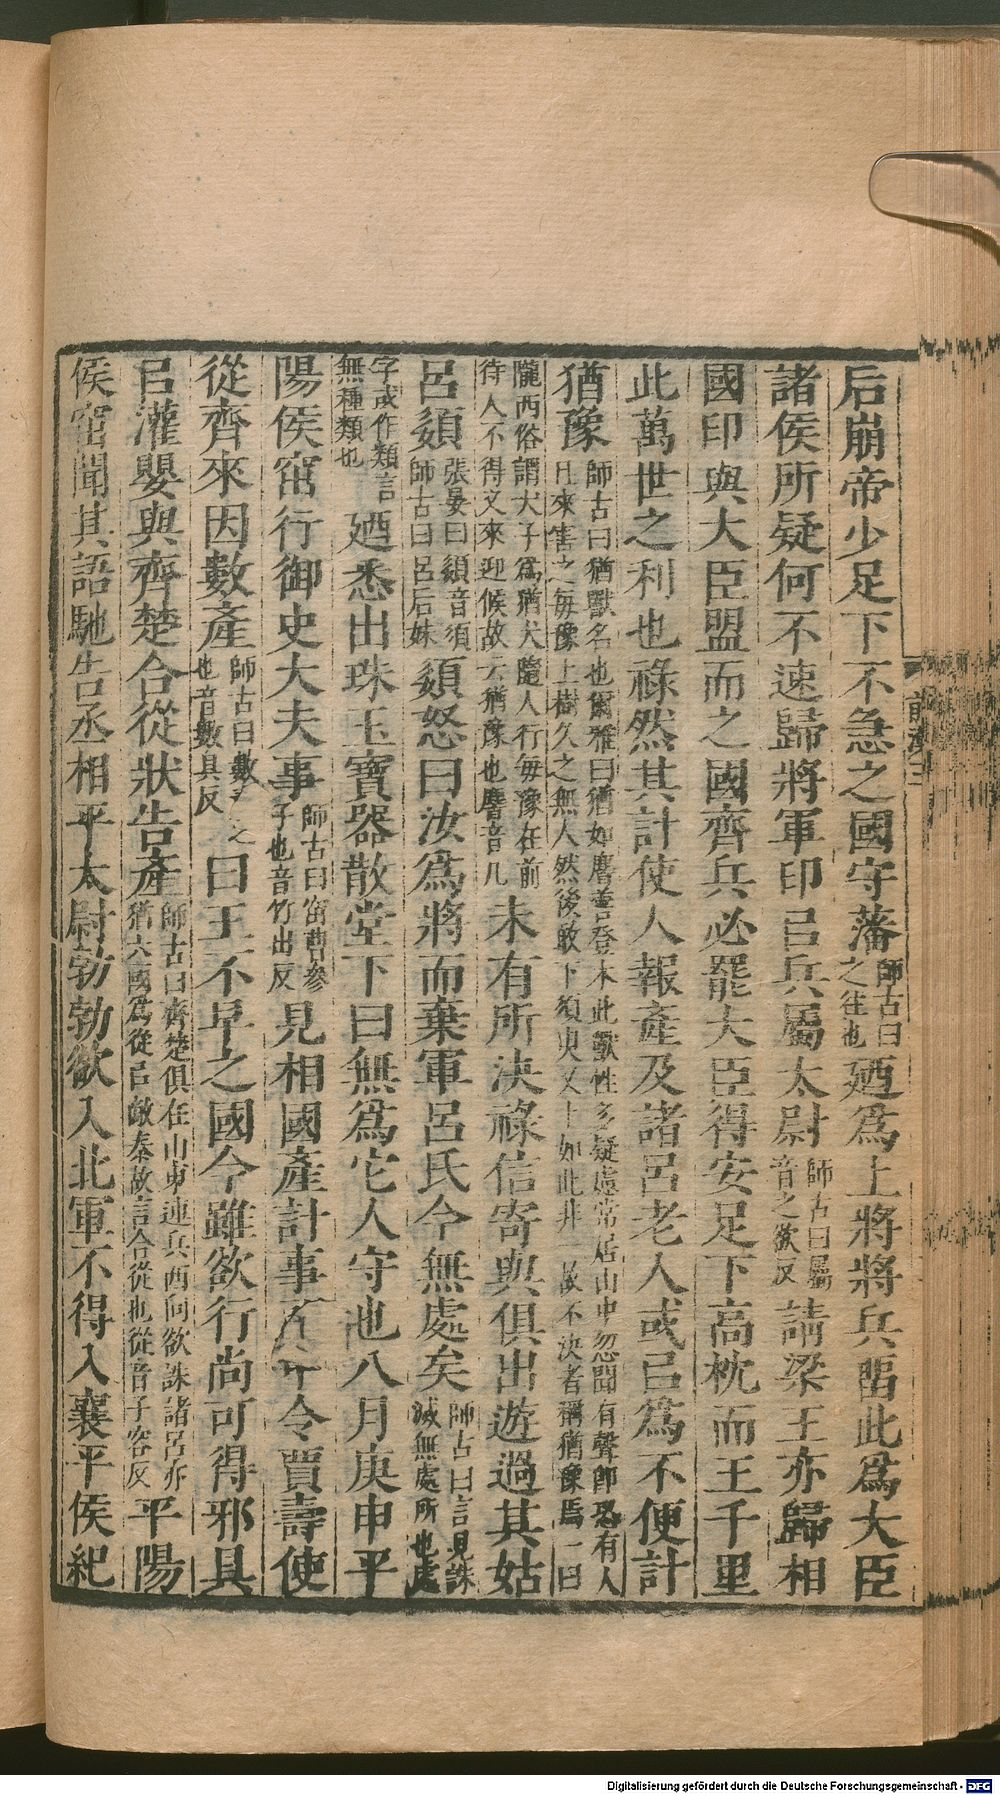 后崩帝少足下不急之國守藩師古曰之往也廼爲上將將兵畱此爲大臣
諸侯所疑何不速歸將軍印㠯兵屬太尉師古曰屬音之欲反請梁王亦歸相
國印與大臣盟而之國齊兵必罷大臣得安足下高枕而王千里
此萬世之利也祿然其計使人報產及諸呂老人或㠯爲不便計
猶豫師古曰猶獸名也爾雅曰猶如麂善登木此獸性多疑慮常居山中忽聞有聲卽恐有人且來害之每豫上樹久之無人然後敢下須臾又上如此非一故不決者稱猶豫焉一曰
隴西俗謂犬子爲猶犬隨人行每豫在前待人不得又來迎候故云猶豫也麂音几未有所決祿信寄與俱出遊過其姑
呂嬃張晏曰嬃音須師古曰呂后妹嬃怒曰汝爲將而棄軍呂氏今無處矣師古曰言見誅滅無處所也處
字或作類言無種類也廼悉出珠玉寶器散堂下曰無爲它人守也八月庚申平
陽侯窋行御史大夫事師古曰窋曹參子也音竹出反見相國產計事令賈壽使
從齊來因數產師古曰數之也音數具反曰王不早之國今雖欲行尚可得邪具
㠯灌嬰與齊楚合從狀告產師古曰齊楚俱在山東連兵西向欲誅諸呂亦猶六國爲從㠯敵秦故言合從也從音子容反平陽
侯窋聞其語馳告丞相平太尉勃勃欲入北軍不得入襄平侯紀
前漢三
Digitalisierung gefördert durch die Deutsche Forschungsgemeinschaft - DFG